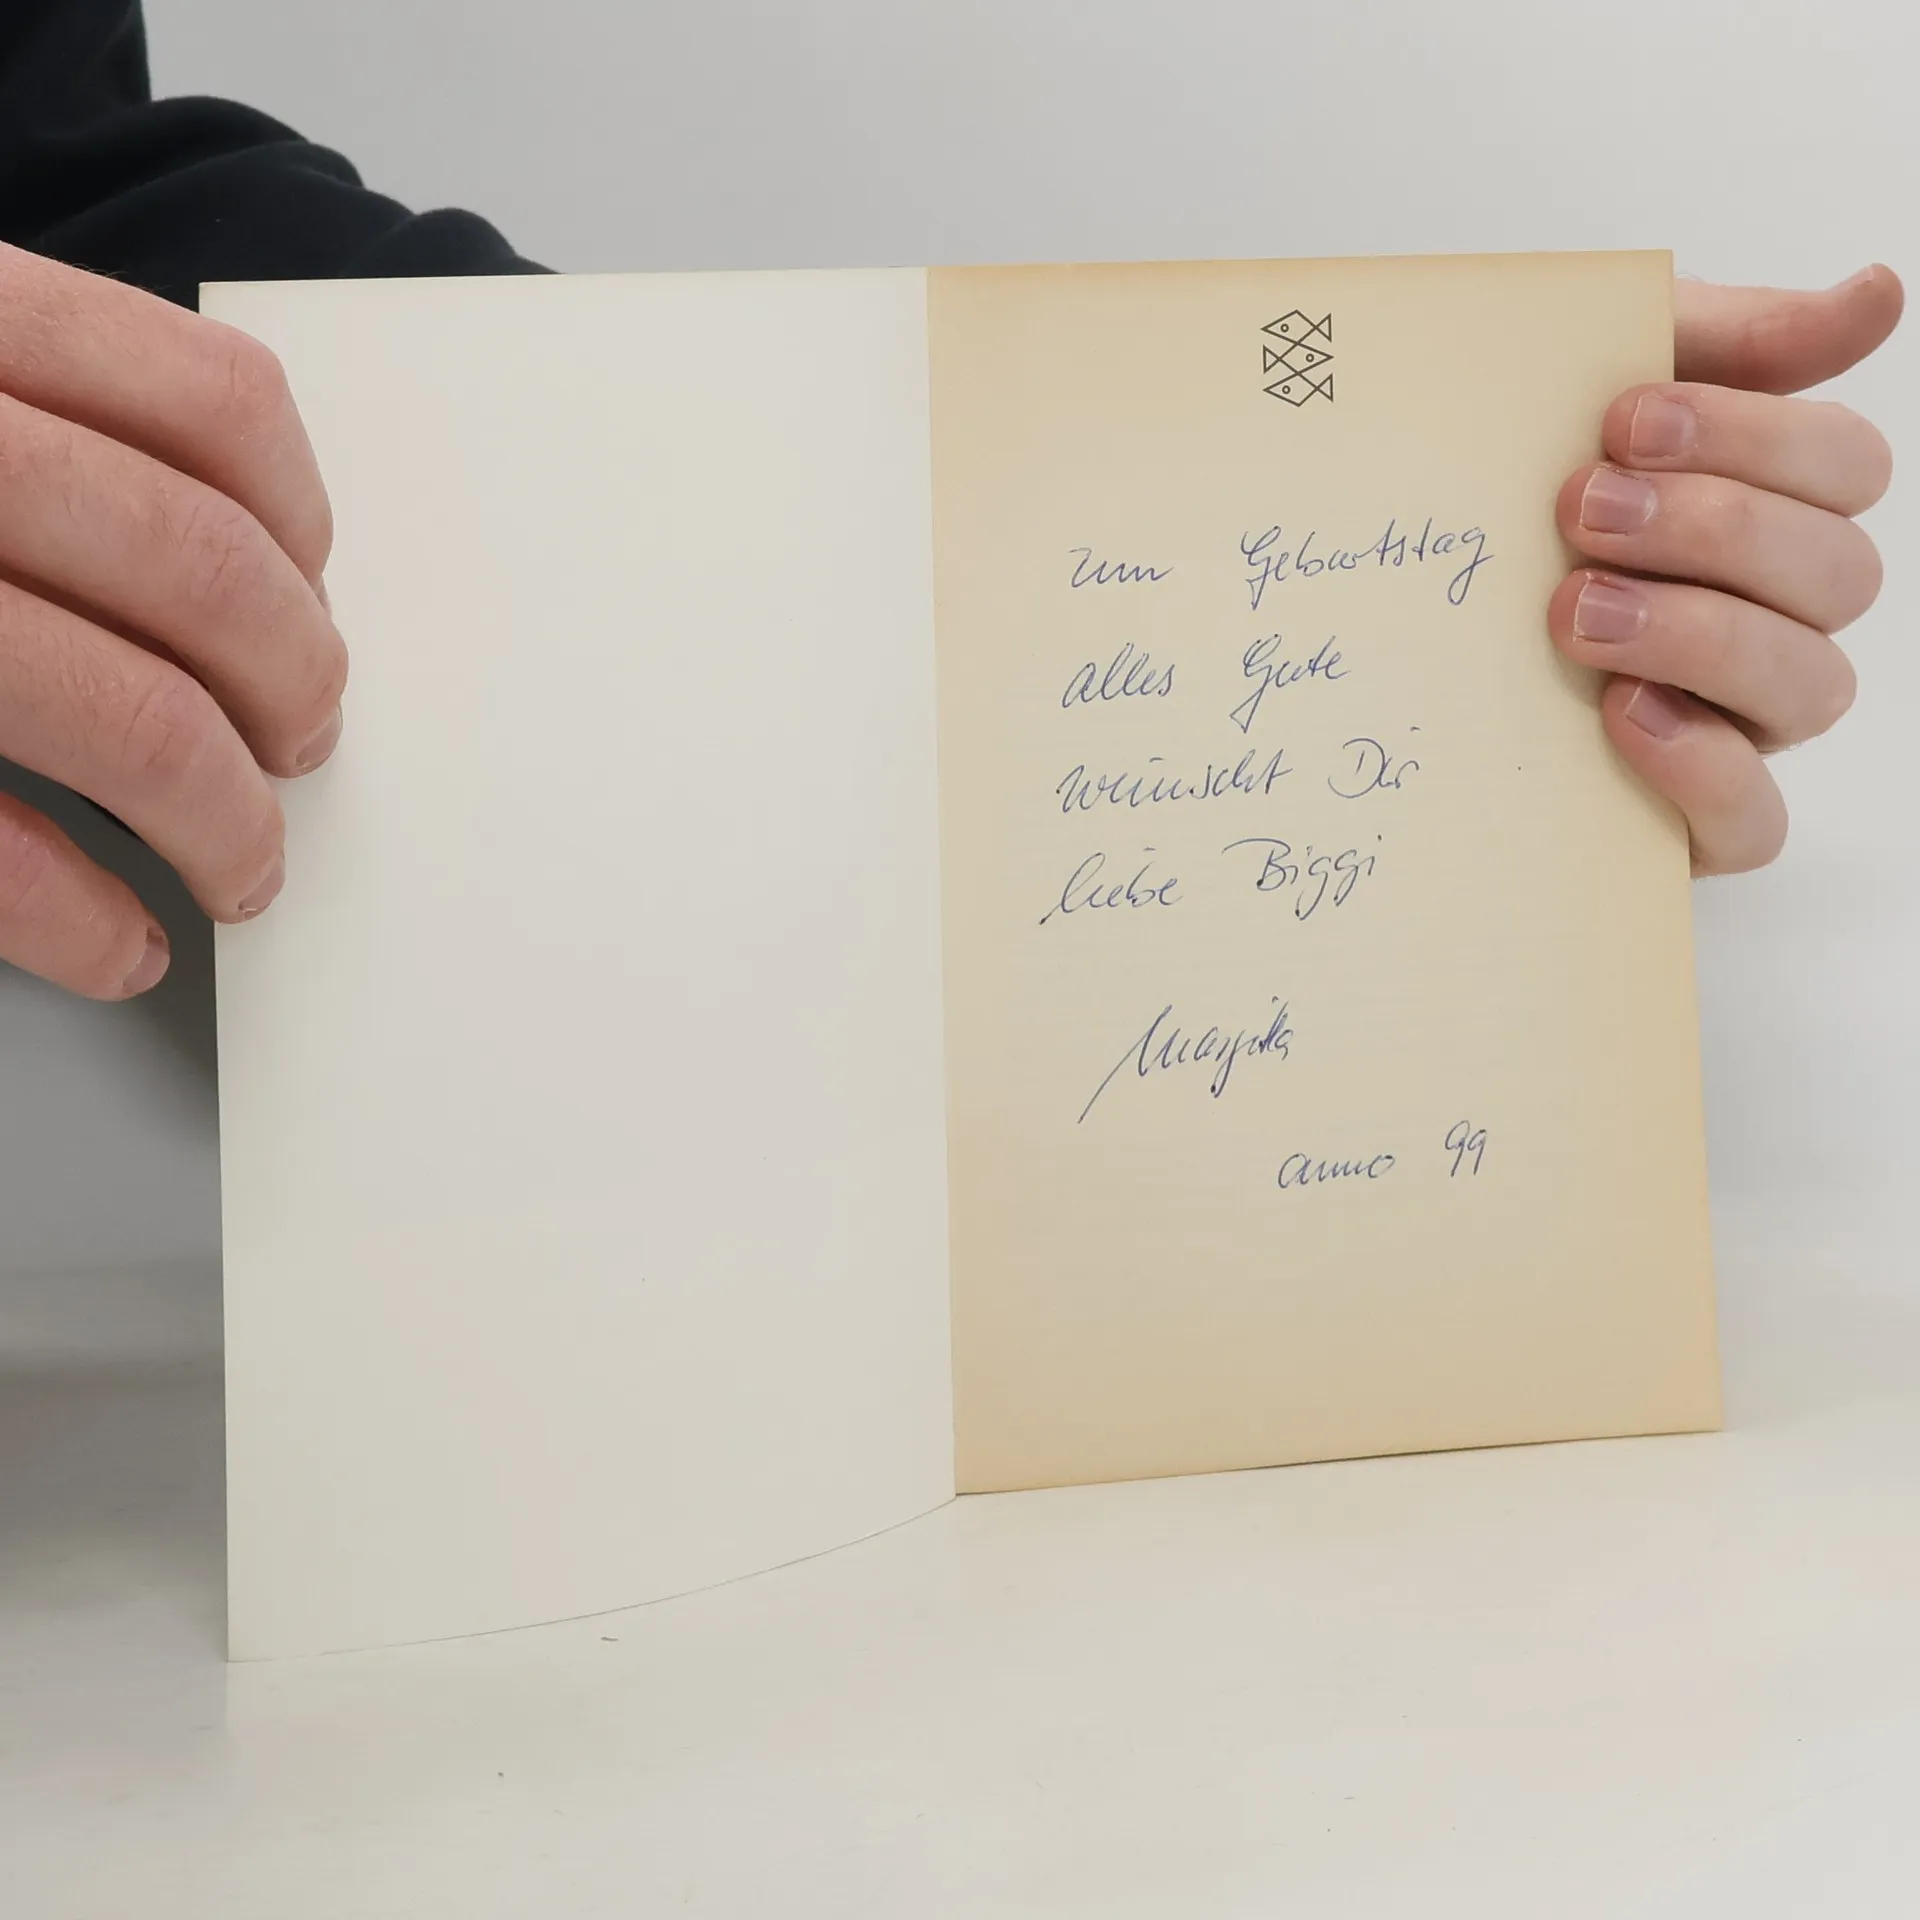 zum Geburtstag
alles Gute
wünscht Dir
liebe Biggi
Margitta
anno 99